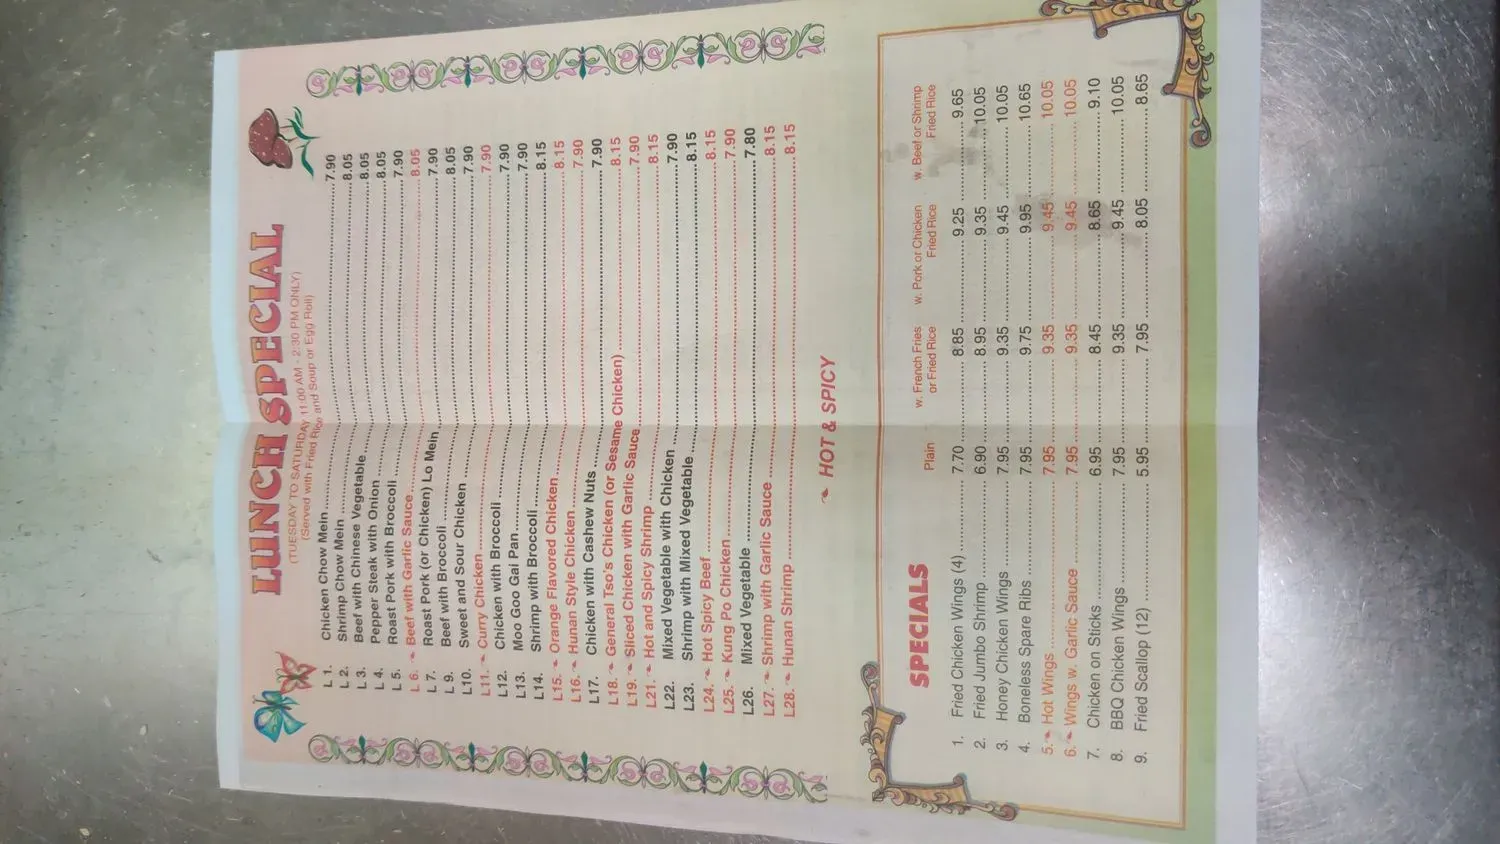 LUNCH SPECIAL
(TUESDAY TO SATURDAY 11:00 AM - 2:30 PM ONLY)
(Served with Fried Rice and Soup or Egg Roll)
L 1. Chicken Chow Mein 7.90
L 2. Shrimp Chow Mein 8.05
L 3. Beef with Chinese Vegetable 8.05
L 4. Pepper Steak with Onion 8.05
L 5. Roast Pork with Broccoli 7.90
L 6. Beef with Garlic Sauce 8.05
L 7. Roast Pork (or Chicken) Lo Mein 7.90
L 9. Beef with Broccoli 8.05
L10. Sweet and Sour Chicken 7.90
L11. Curry Chicken 7.90
L12. Chicken with Broccoli 7.90
L13. Moo Goo Gai Pan 7.90
L14. Shrimp with Broccoli 8.15
L15. Orange Flavored Chicken 8.15
L16. Hunan Style Chicken 7.90
L17. Chicken with Cashew Nuts 7.90
L18. General Tso's Chicken (or Sesame Chicken) 8.15
L19. Sliced Chicken with Garlic Sauce 7.90
L21. Hot and Spicy Shrimp 8.15
L22. Mixed Vegetable with Chicken 7.90
L23. Shrimp with Mixed Vegetable 8.15
L24. Hot Spicy Beef 8.15
L25. Kung Po Chicken 7.90
L26. Mixed Vegetable 7.80
L27. Shrimp with Garlic Sauce 8.15
L28. Hunan Shrimp 8.15
HOT & SPICY
SPECIALS
Plain w. French Fries or Fried Rice w. Pork or Chicken Fried Rice w. Beef or Shrimp Fried Rice
1. Fried Chicken Wings (4) 7.70 8.85 9.25 9.65
2. Fried Jumbo Shrimp 6.90 8.95 9.35 10.05
3. Honey Chicken Wings 7.95 9.35 9.45 10.05
4. Boneless Spare Ribs 7.95 9.75 9.95 10.65
5. Hot Wings 7.95 9.35 9.45 10.05
6. Wings w. Garlic Sauce 7.95 9.35 9.45 10.05
7. Chicken on Sticks 6.95 8.45 8.65 9.10
8. BBQ Chicken Wings 7.95 9.35 9.45 10.05
9. Fried Scallop (12) 5.95 7.95 8.05 8.65